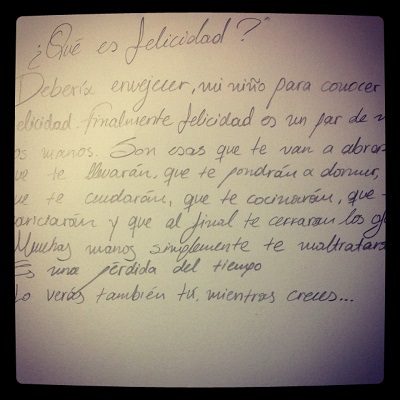 ¿Qué es felicidad?"
Debería envejecer, mi niño para conocer
felicidad. Finalmente felicidad es un par de
manos. Son esas que te van a abra
te llevarán, que te pondrán a dormir,
te cuidarán, que te cocinarán, que
y que al final te cerraran los
Muchas manos simplemente te maltratar
Es una pérdida del tiempo
Lo verás también tú, mientras creces...